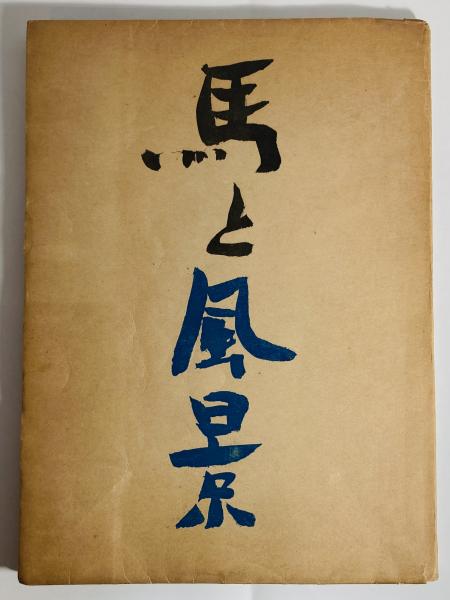 馬と風景